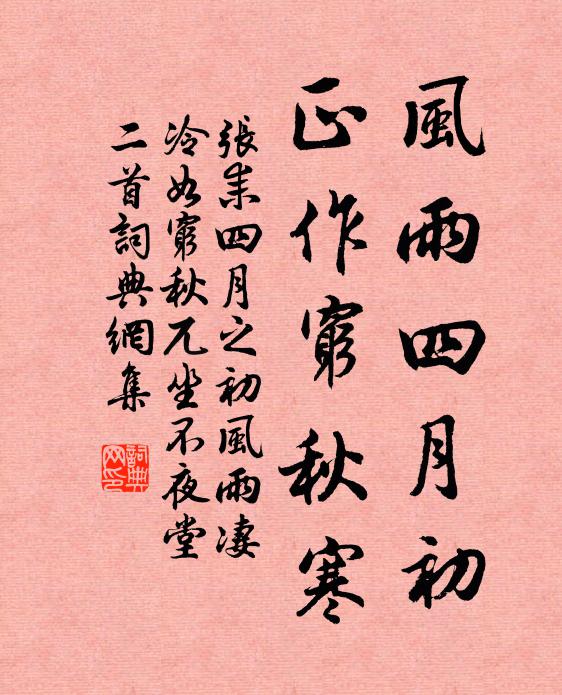 風雨四月初
正作窮秋寒
張耒四月之初風雨凄
冷如窮秋兀坐不夜堂
二首詞典網集
詞典
网印